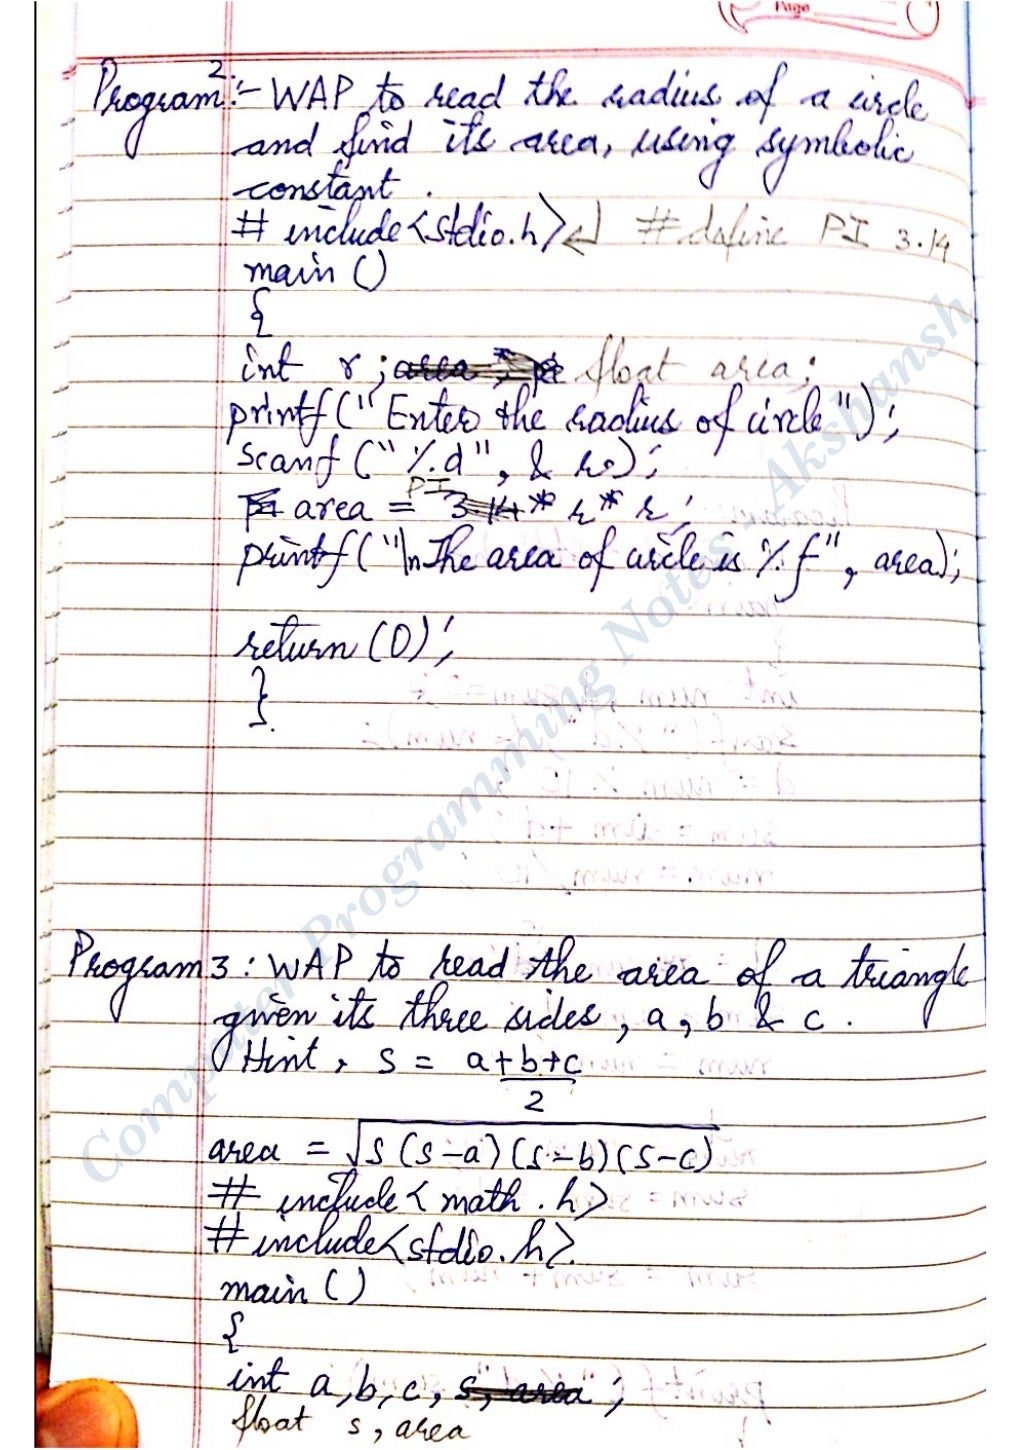 Page
Program 2:- WAP to read the radius of a circle
and find its area, using symbolic
constant.
# include<stdio.h>↵ # define PI 3.14
main ()
{
int r ; float area;
printf("Enter the radius of circle");
scanf ("%d", & r);
area = PI * r * r ;
printf("\nThe area of circle is %f", area);
return (0);
}
Program 3 : WAP to read the area of a triangle
given its three sides, a, b & c .
Hint, s = a+b+c
2
area = √s (s-a) (s-b) (s-c)
# include< math.h>
# include<stdio.h>
main ()
{
int a, b, c, ;
float s, area
Computer Programming Notes - Akshansh